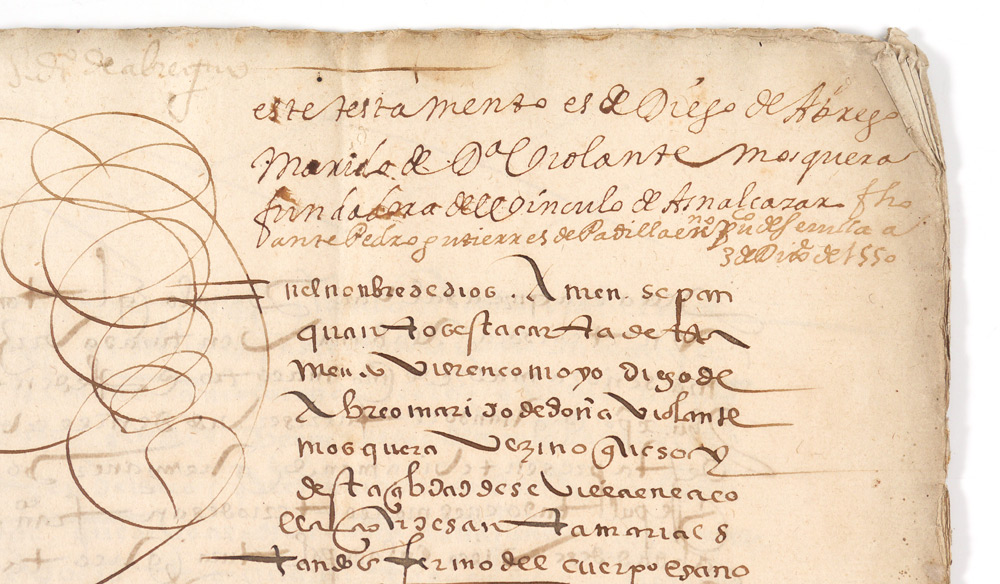 de abrego
este testamento es de Diego de Abrego
Marido de Dª Violante Mosquera
fundadora dell vinculo de Asnalcazar fho
ante Pedro gutierres de Padilla essnº puº de sevilla a
3 de Diº de 1550
nel nonbre de dios. Amen. sepan
quantos esta carta de testa
menº vieren como yo diego de
Abreo marido de doña violante
mosquera vezino que soy
desta çbdad de sevilla en la co
llaçion de santa maria es
tando enfermo del cuerpo e sano